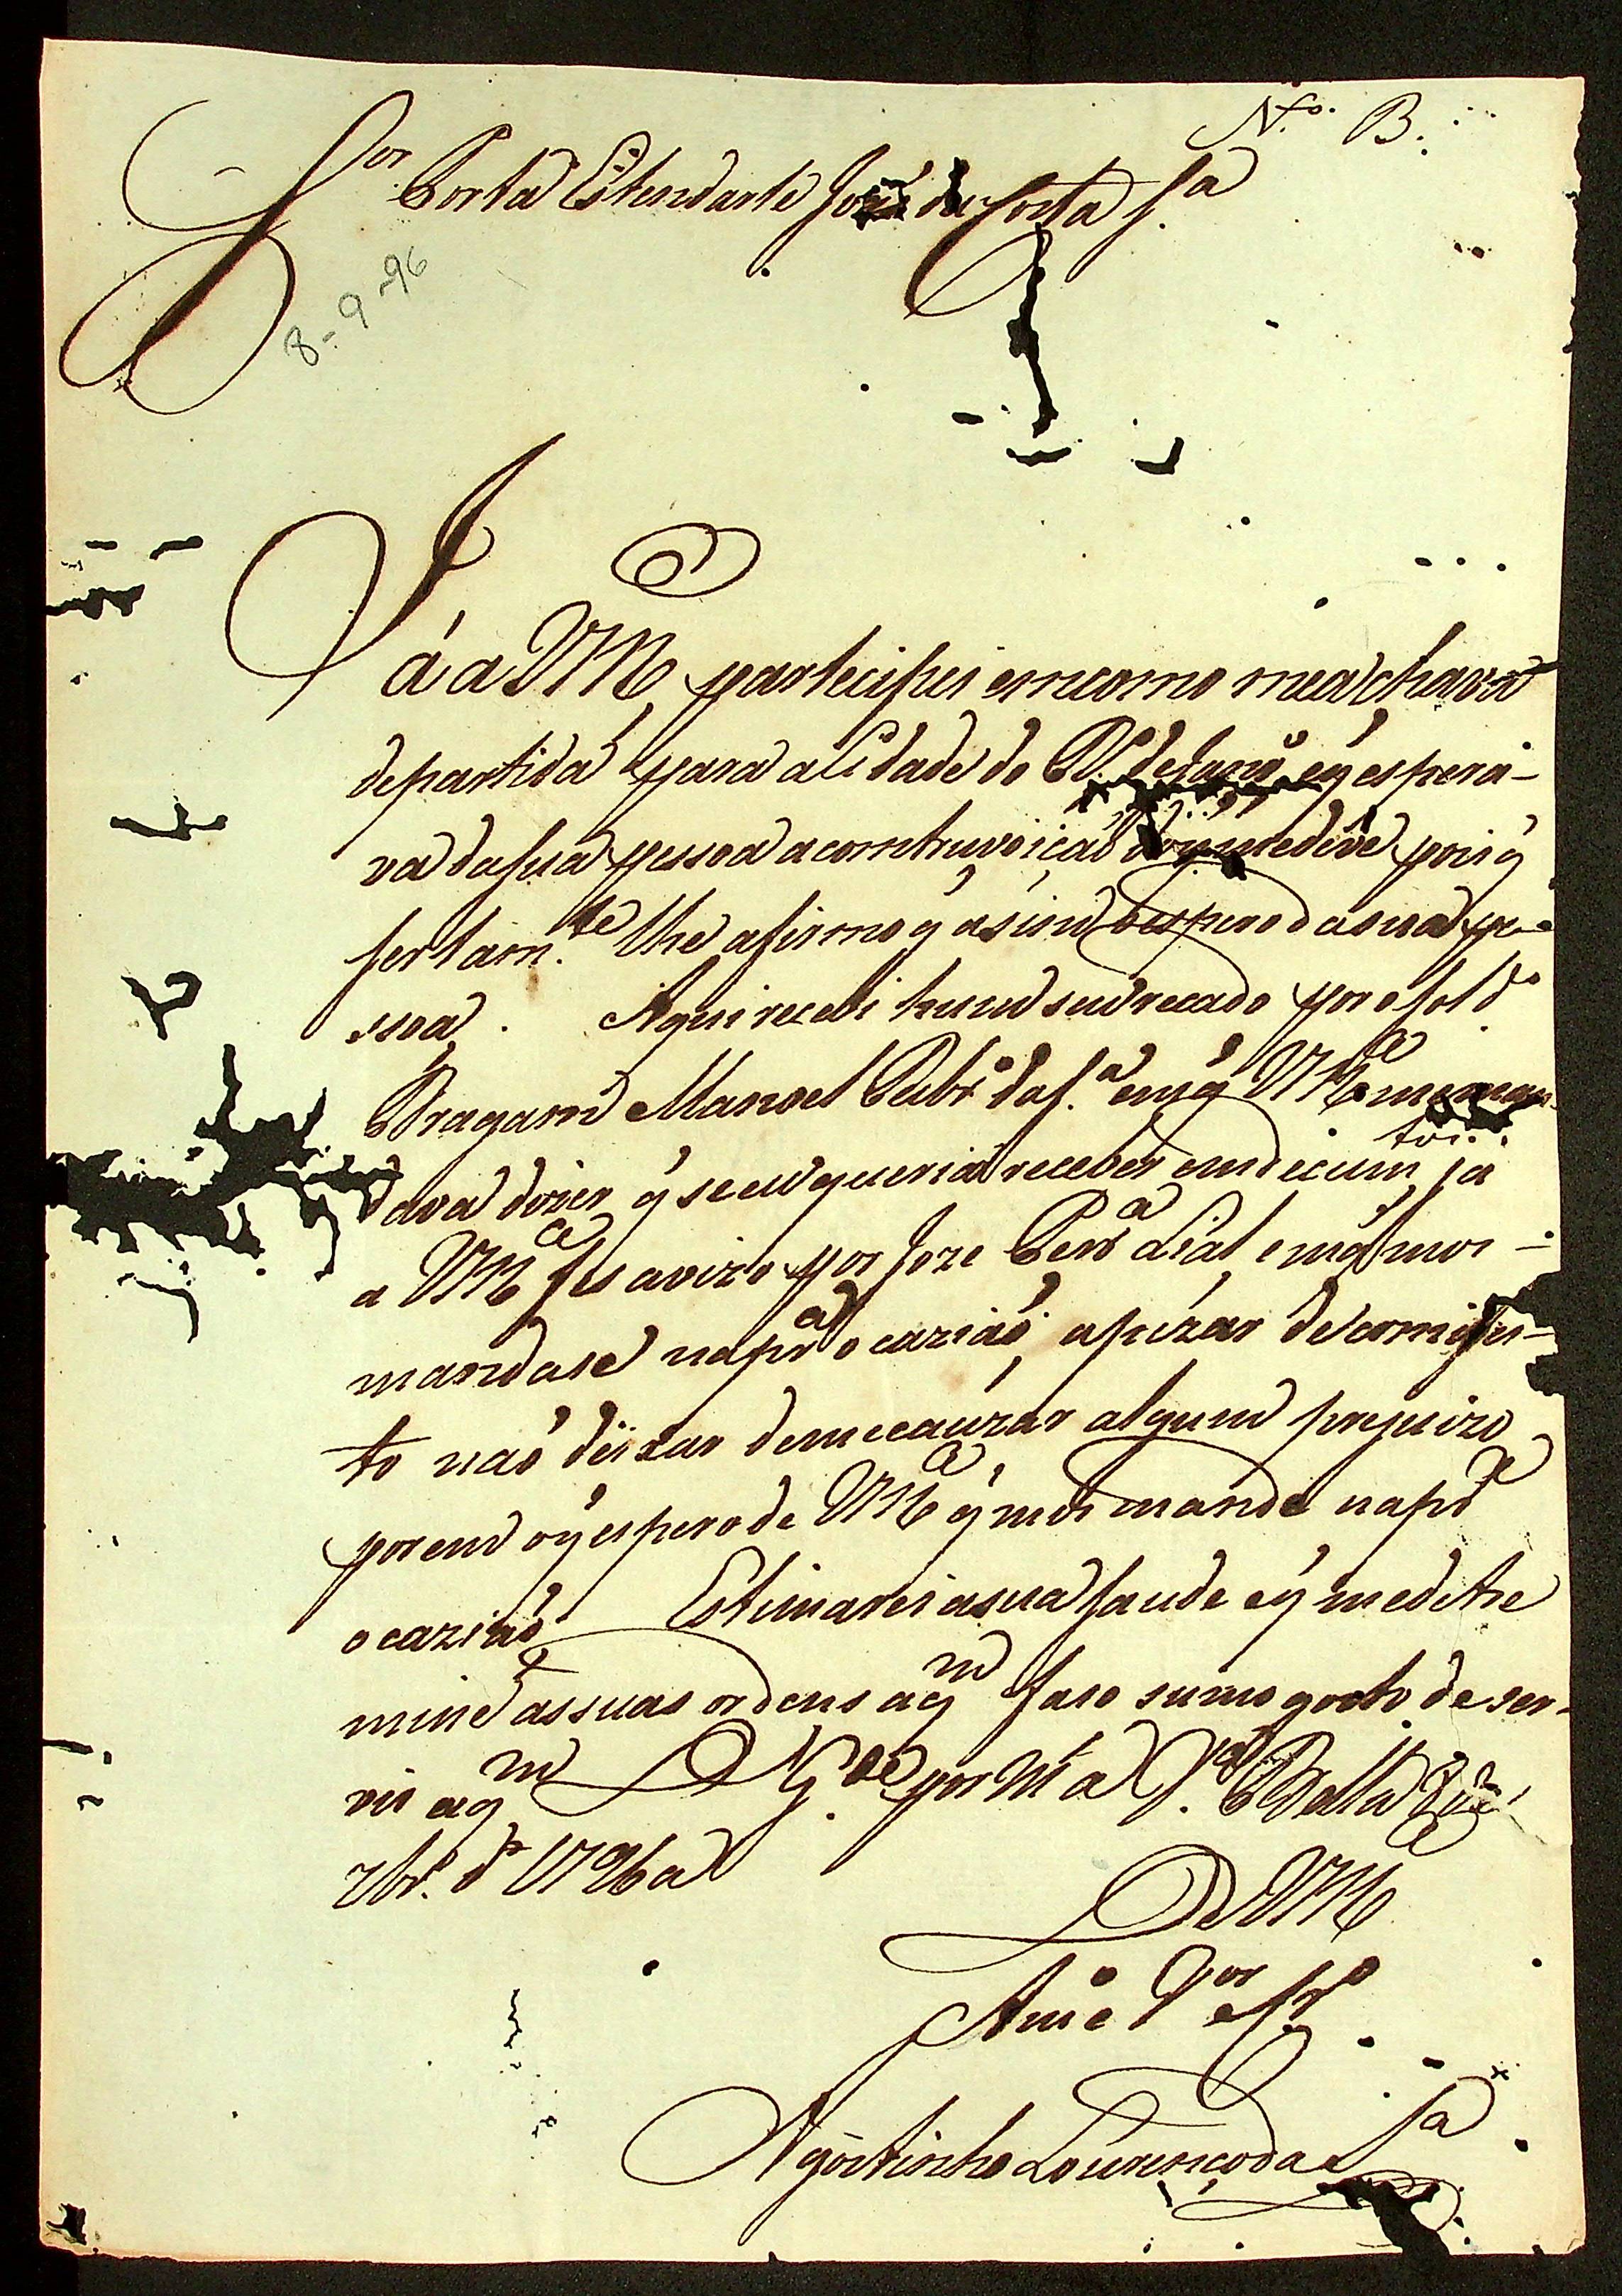 N.º B.
S.or Porta Estendarte Joze da Costa S.a
8-9-96
Já a VM.ce partecipei emcomo meachava
departida para aCidade do R.º deJanr.º eq̃ espera-
va dasua pessoa acomtribuiçáõ doq̃ medeve pois q̃
sertam.te lhe afirmo q̃ asim oespero dasua pe-
ssoa. Aqui recebi hum seu recado por o sold.º
Dragam Manoel Rибr.º daS.a emq̃ VM.ce meman-
dava dizer q̃ seeu queria receber em tocim ja
a VM.ce fis avizo por Joze Per.a Lial emq̃ moi-
mandase napr.a ocaziáõ, apezar de comifei-
to náõ deixar demecauzar algum prejuizo
porem oq̃ espero de VM.ce q̃ moi mande napr.e
ocaziáõ Estimarei asua saude eq̃ medetre
mine assuas ordens aq.m faso sumo gosto de ser-
vir aq.m D.s G.de por m.s a.s
7br.º de 1796 a
De VM.ce
Am.º V.or e Cr.º
Agostinho Lourenço da S.a